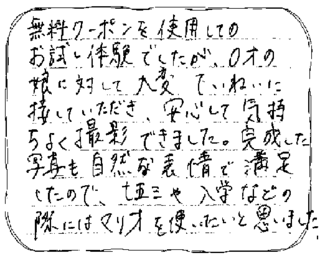 無料クーポンを使用しての
お試し体験でしたが、0才の
娘に対して大変ていねいに
接していただき、安心して気持
ちよく撮影できました。完成した
写真も自然な表情で満足
したので、七五三や入学などの
際にはマリオを使いたいと思いました。